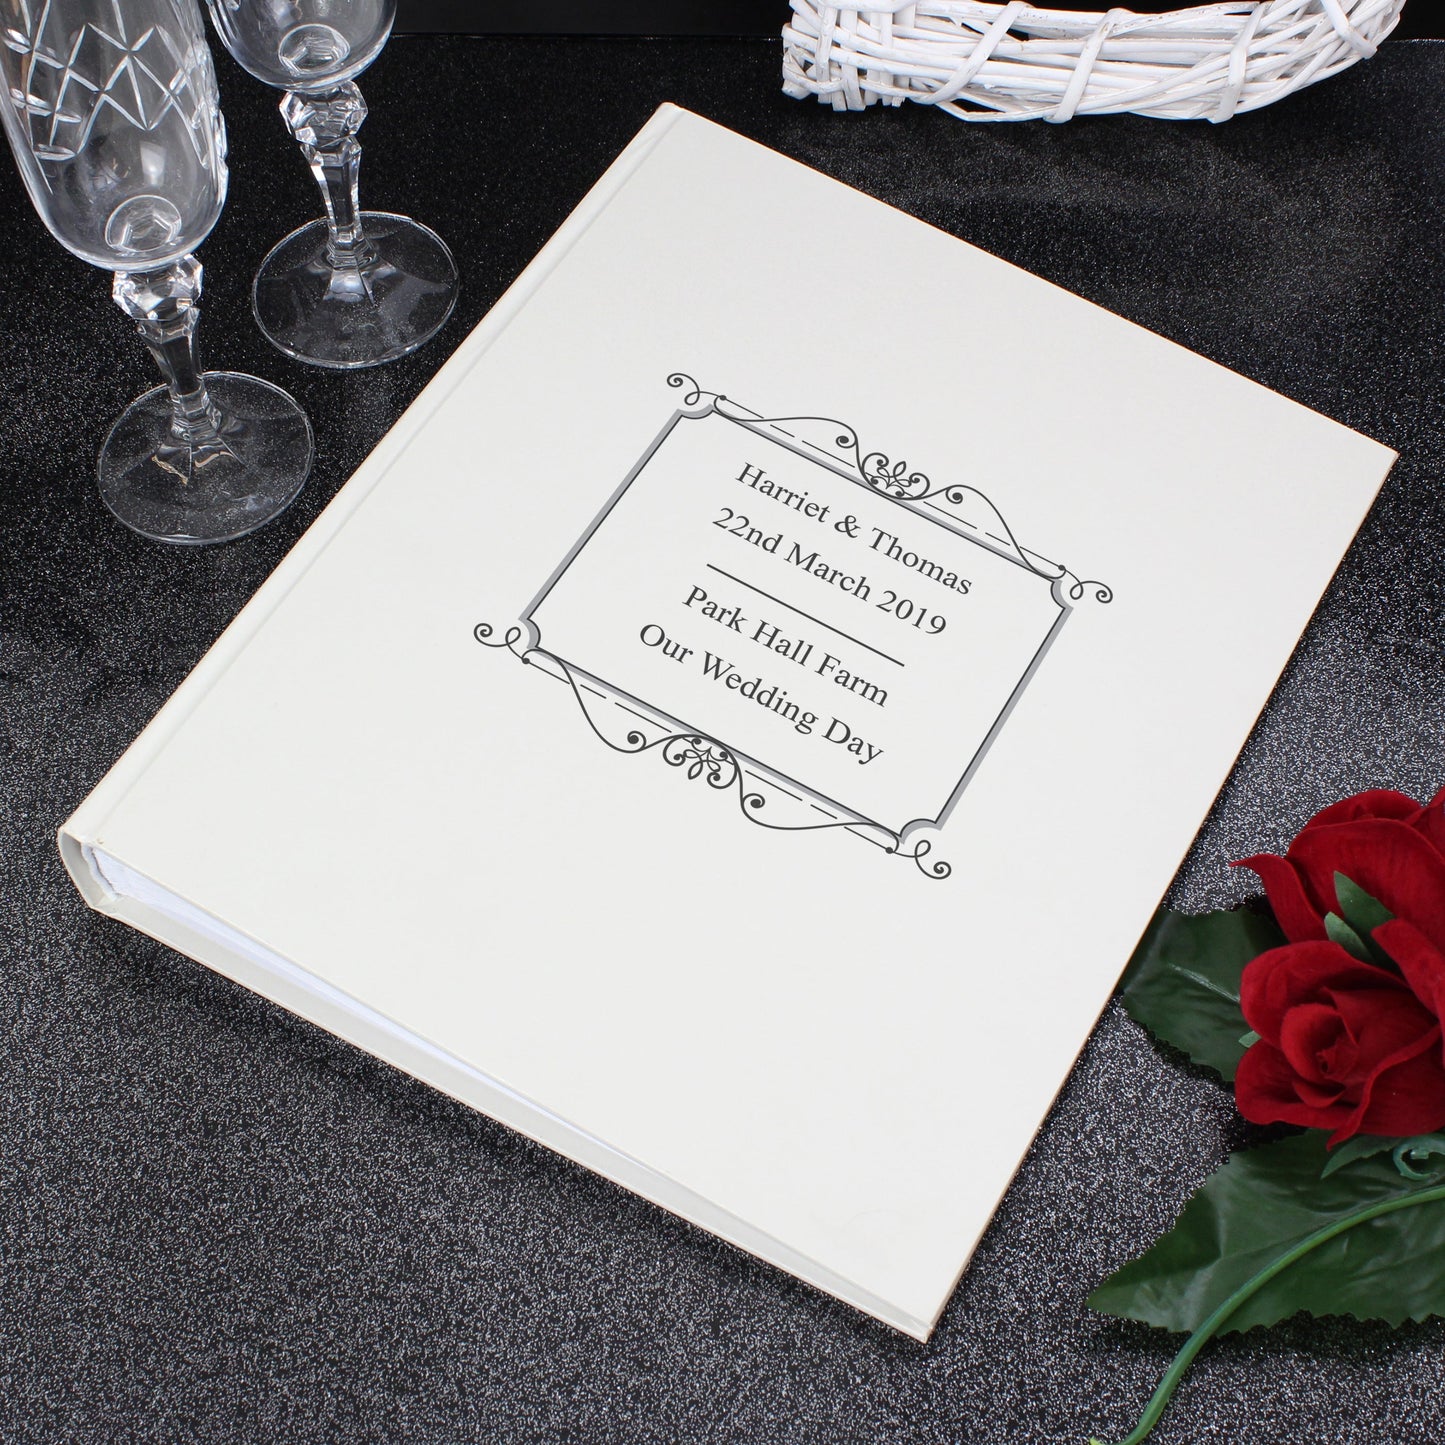 Harriet & Thomas
22nd March 2019
Park Hall Farm
Our Wedding Day